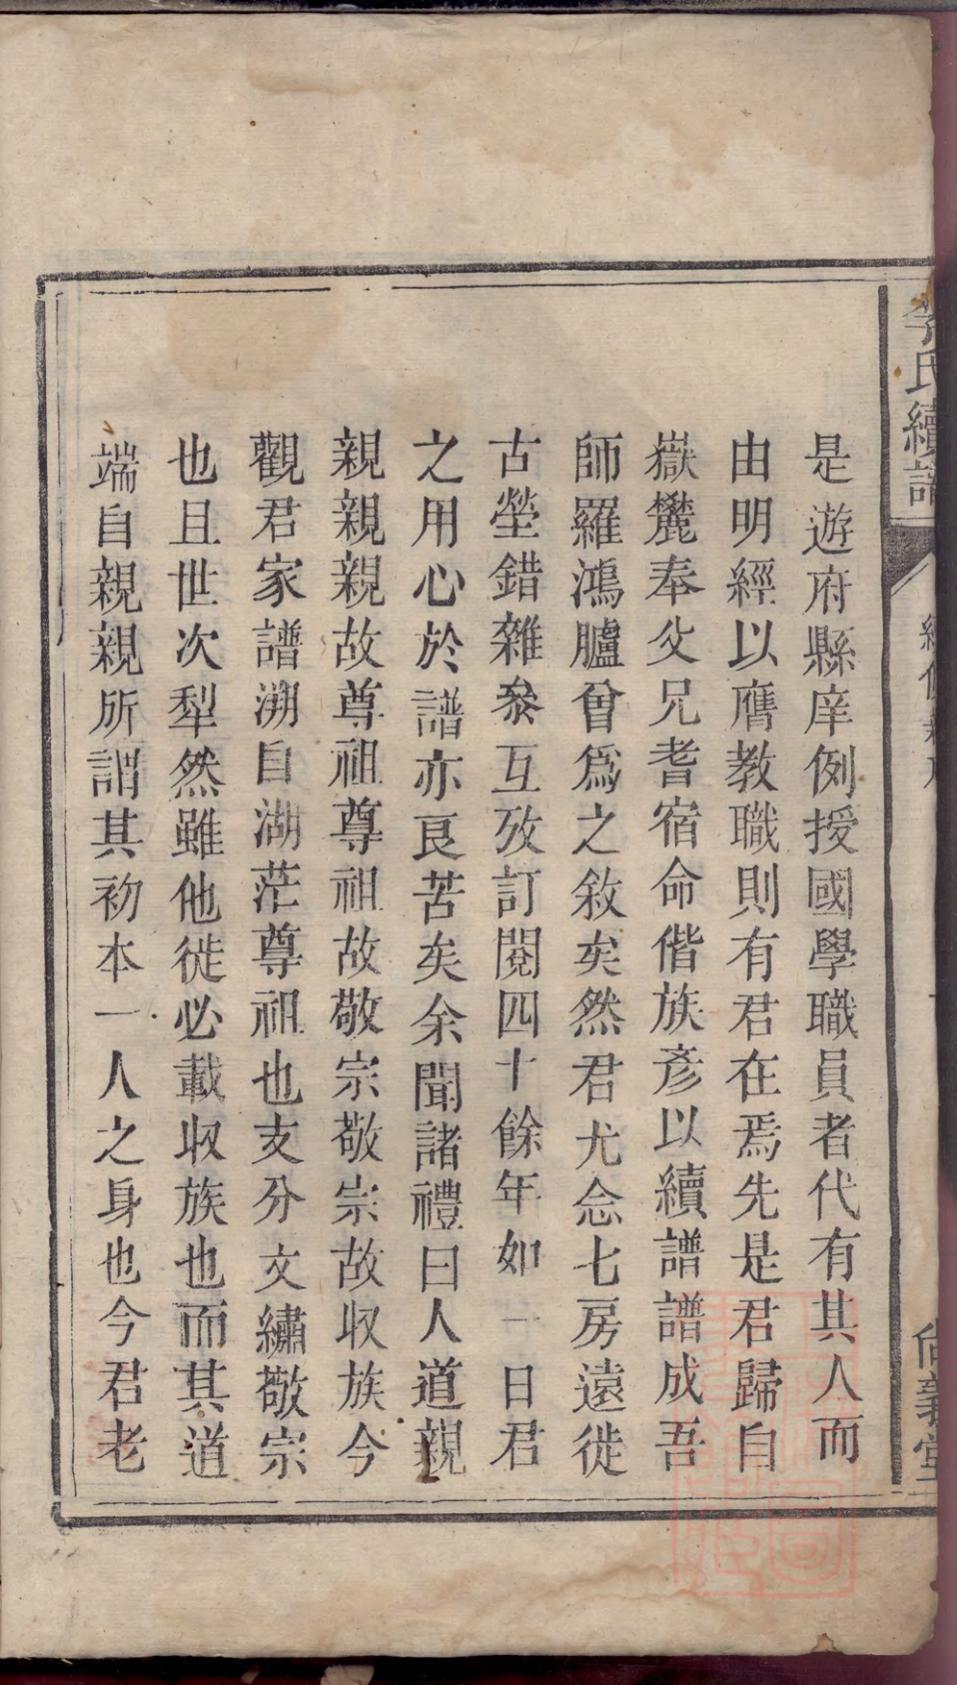 李氏續譜
尙義堂
是遊府縣庠例授國學職員者代有其人而
由明經以膺教職則有君在焉先是君歸自
嶽麓奉父兄耆宿命偕族彥以續譜譜成吾
師羅鴻臚曾爲之敘矣然君尤念七房遠徙
古塋錯雜叅互攷訂閱四十餘年如一日君
之用心於譜亦良苦矣余聞諸禮曰人道親
親親親故尊祖尊祖故敬宗敬宗故收族今
觀君家譜溯自湖茫尊祖也支分文繡敬宗
也且世次犁然雖他徙必載收族也而其道
端自親親所謂其初本一人之身也今君老